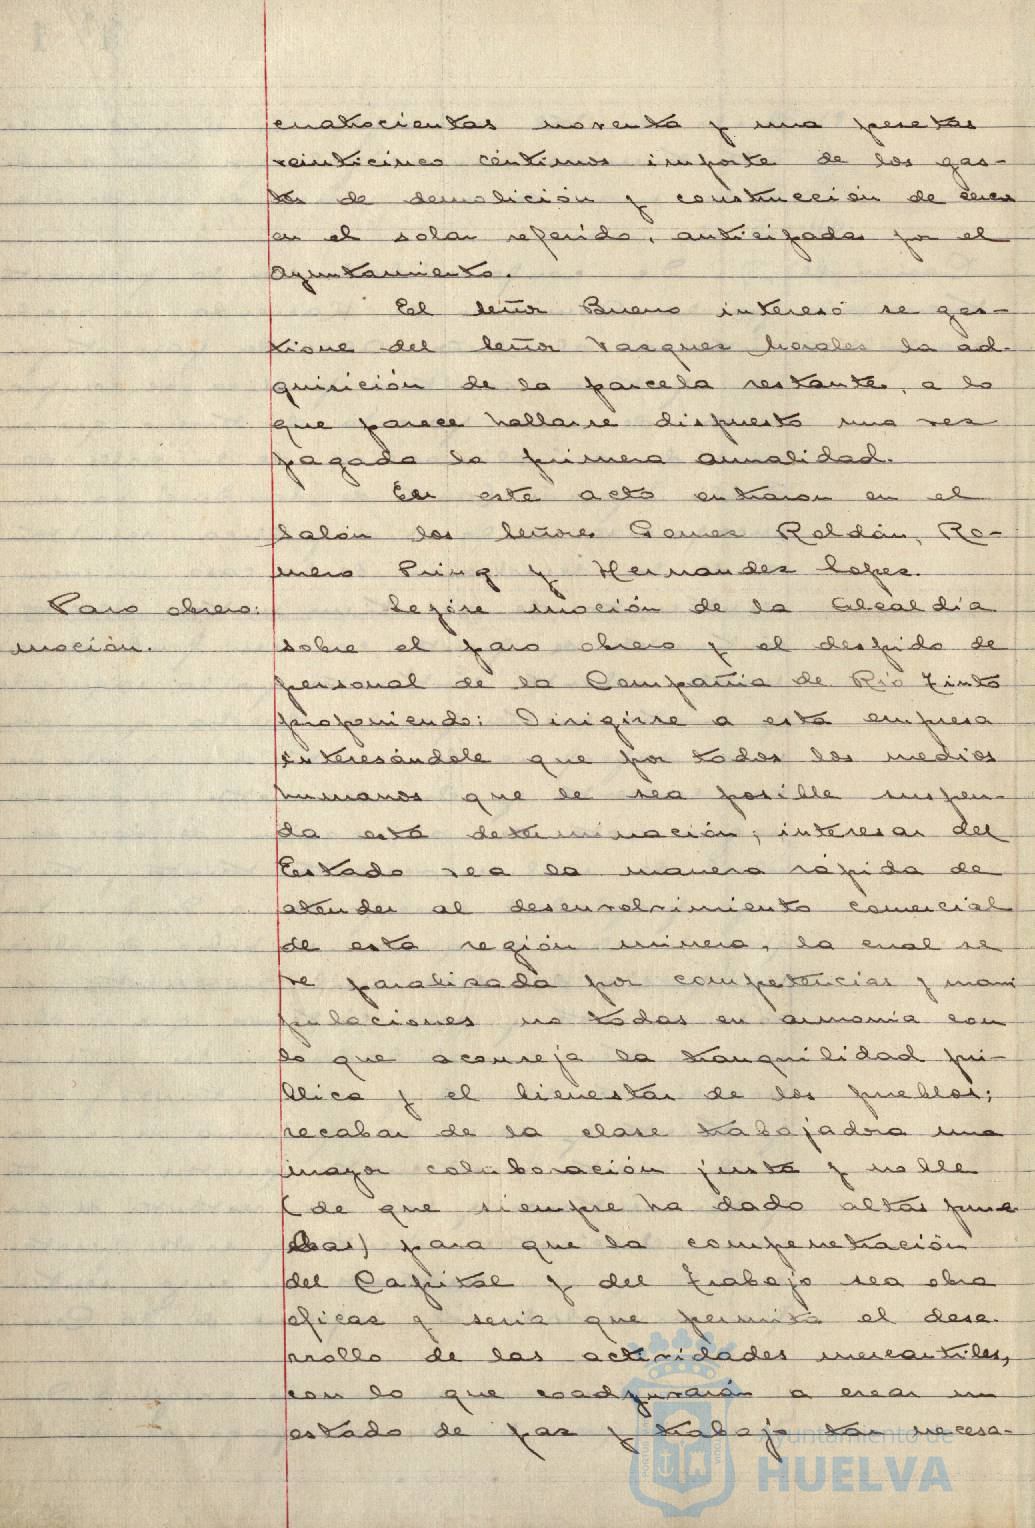 cuatrocientas noventa y una pesetas
veinticinco céntimos importe de los gas-
tos de demolición y construcción de cerca
en el solar referido, anticipadas por el
Ayuntamiento.
El señor Bueno interesó se ges-
tione del señor Vazquez Morales la ad-
quisición de la parcela restante, a lo
que parece hallarse dispuesto una vez
pagada la primera anualidad.
En este acto entraron en el
Salón los señores Gomez Roldán, Ro-
mero Puig y Hernandez Lopez.
Paro obrero:
moción.
Leyóse moción de la Alcaldía
sobre el paro obrero y el despido de
personal de la Compañía de Río Tinto
proponiendo: Dirigirse a esta empresa
interesándole que por todos los medios
humanos que le sea posible suspen-
da esta determinación; interesar del
Estado vea la manera rápida de
atender al desenvolvimiento comercial
de esta región minera, la cual se
ve paralizada por competencias y mani
pulaciones no todas en armonía con
lo que aconseja la tranquilidad pú-
blica y el bienestar de los pueblos;
recabar de la clase trabajadora una
mayor colaboración justa y noble
(de que siempre ha dado altas prue
bas) para que la compenetración
del Capital y del Trabajo sea obra
eficaz y seria que permita el desa-
rrollo de las actividades mercantiles,
con lo que coadyuvarán a crear un
estado de paz y trabajo tan necesa-
Ayuntamiento de
HUELVA